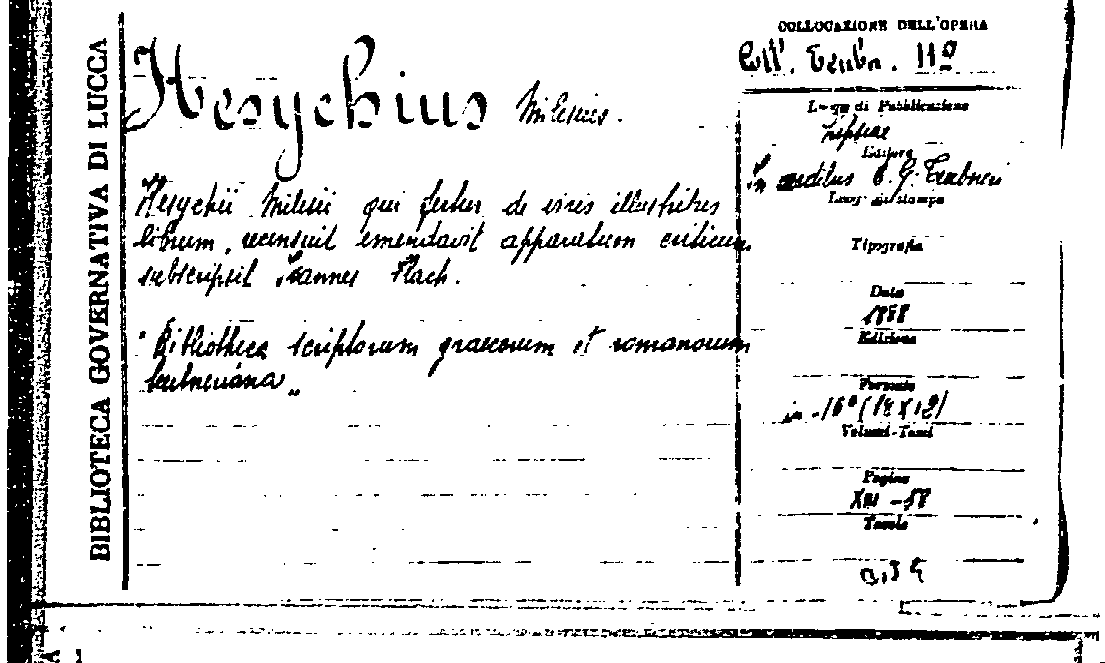 BIBLIOTECA GOVERNATIVA DI LUCCA
Hesychius Milesius.
Hesychii Milesii qui fertur de viris illustribus
librum, recensuit emendavit apparatum criticum
subscripsit Ioannes Flach.
"Bibliotheca scriptorum graecorum et romanorum
teubneriana"
COLLOCAZIONE DELL'OPERA
Coll. Teubn. 119
Luogo di Pubblicazione
Lipsiae
Editore
In aedibus B. G. Teubneri
Luogo di stampa
Tipografia
Data
Edizione
Formato
in-16° (18X12)
Volumi-Tomi
Pagine
Tavole